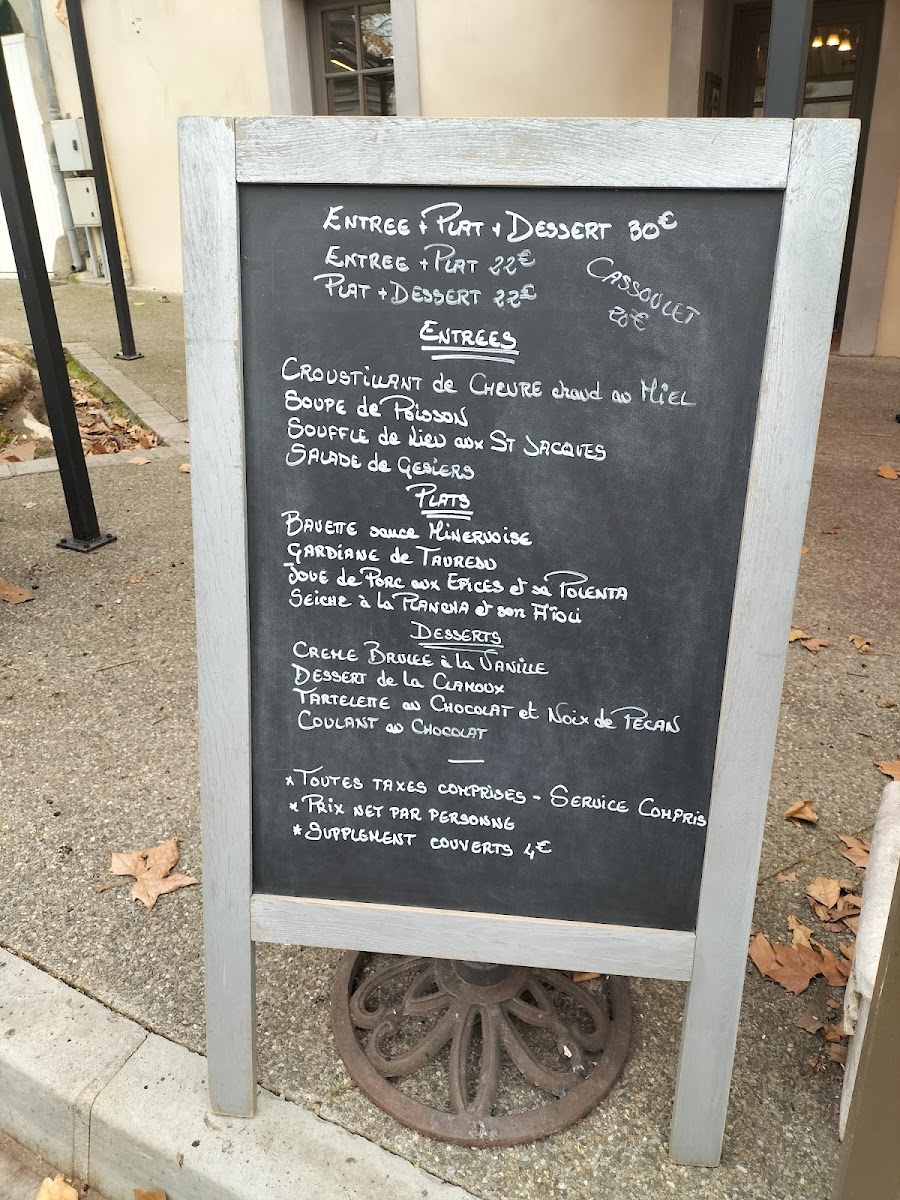 ENTREE + PLAT + DESSERT 30€
ENTREE + PLAT 22€
PLAT + DESSERT 22€
CASSOULET
20€
ENTREES
CROUSTILLANT de CHEVRE chaud au MIEL
SOUPE de POISSON
SOUFFLE de Lieu aux ST JACQUES
SALADE de GESIERS
PLATS
BAVETTE sauce MINERVOISE
GARDIANE de TAUREAU
JOUE de PORC aux EPICES et sa POLENTA
SEICHE à la PLANCHA et son AÏOLI
DESSERTS
CREME BRULEE à la VANILLE
DESSERT de la CLAMOUX
TARTELETTE au CHOCOLAT et NOIX de PECAN
COULANT au CHOCOLAT
* TOUTES TAXES COMPRISES - SERVICE COMPRIS
* PRIX NET PAR PERSONNE
* SUPPLEMENT COUVERTS 4€